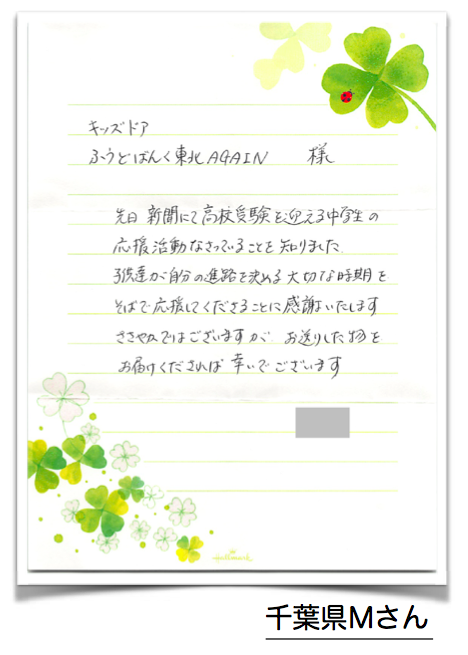 キッズドア
ふうどばんく東北AGAIN 様
先日 新聞にて高校受験を迎える中学生の
応援活動なさっていることを知りました
子供達が自分の進路を決める大切な時期を
そばで応援してくださることに感謝いたします
ささやかではございますが、お送りした物を
お届けくだされば幸いでございます
Hallmark
千葉県Mさん